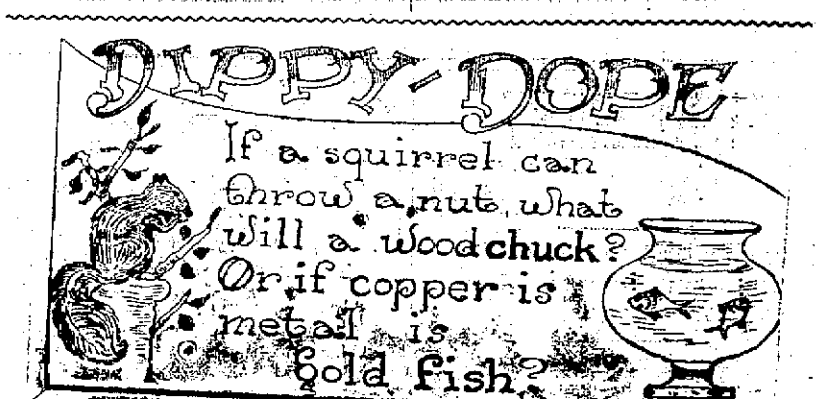 DIPPY-DOPE
If a squirrel can
throw a nut, what
will a woodchuck?
Or if copper is
metal is
Gold fish?